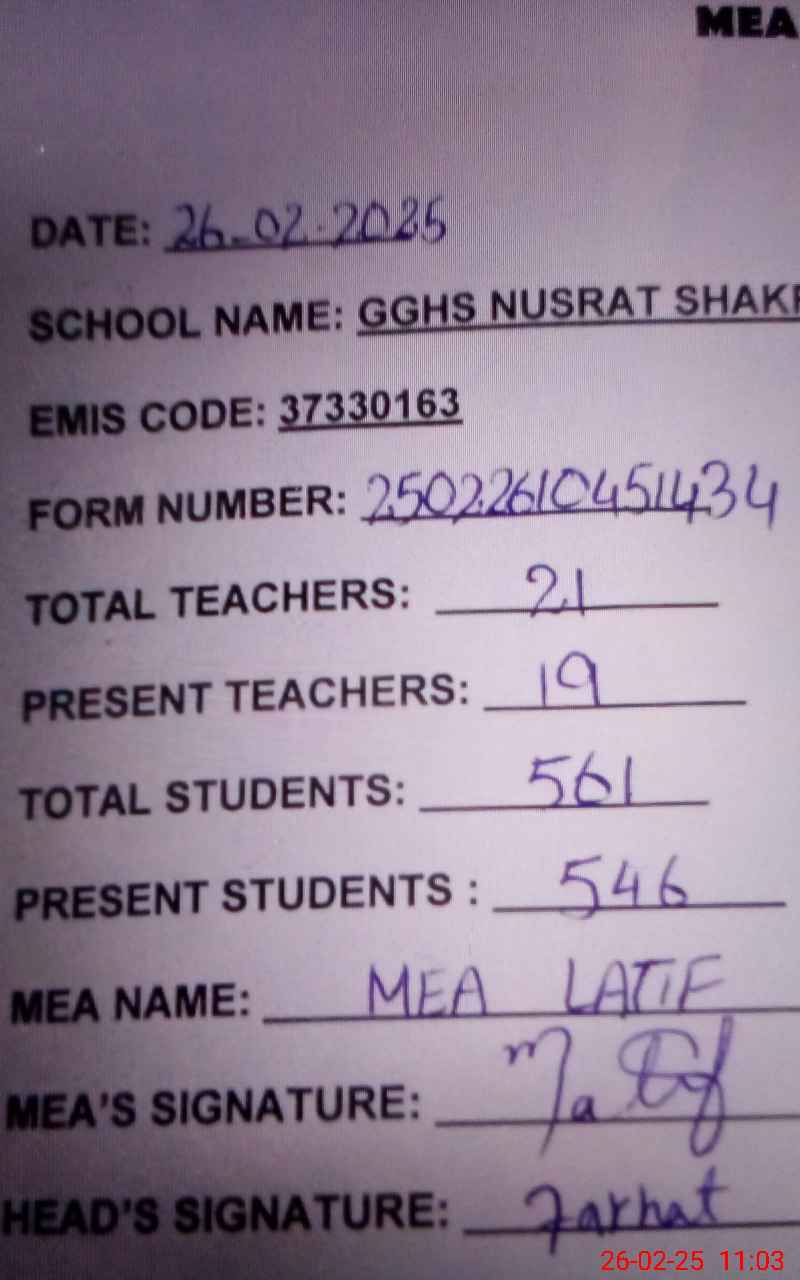 MEA
DATE: 26-02-2025
SCHOOL NAME: GGHS NUSRAT SHAKR
EMIS CODE: 37330163
FORM NUMBER: 25022610451434
TOTAL TEACHERS: 21
PRESENT TEACHERS: 19
TOTAL STUDENTS: 561
PRESENT STUDENTS : 546
MEA NAME: MEA LATIF
MEA'S SIGNATURE:
HEAD'S SIGNATURE: Farhat
26-02-25 11:03